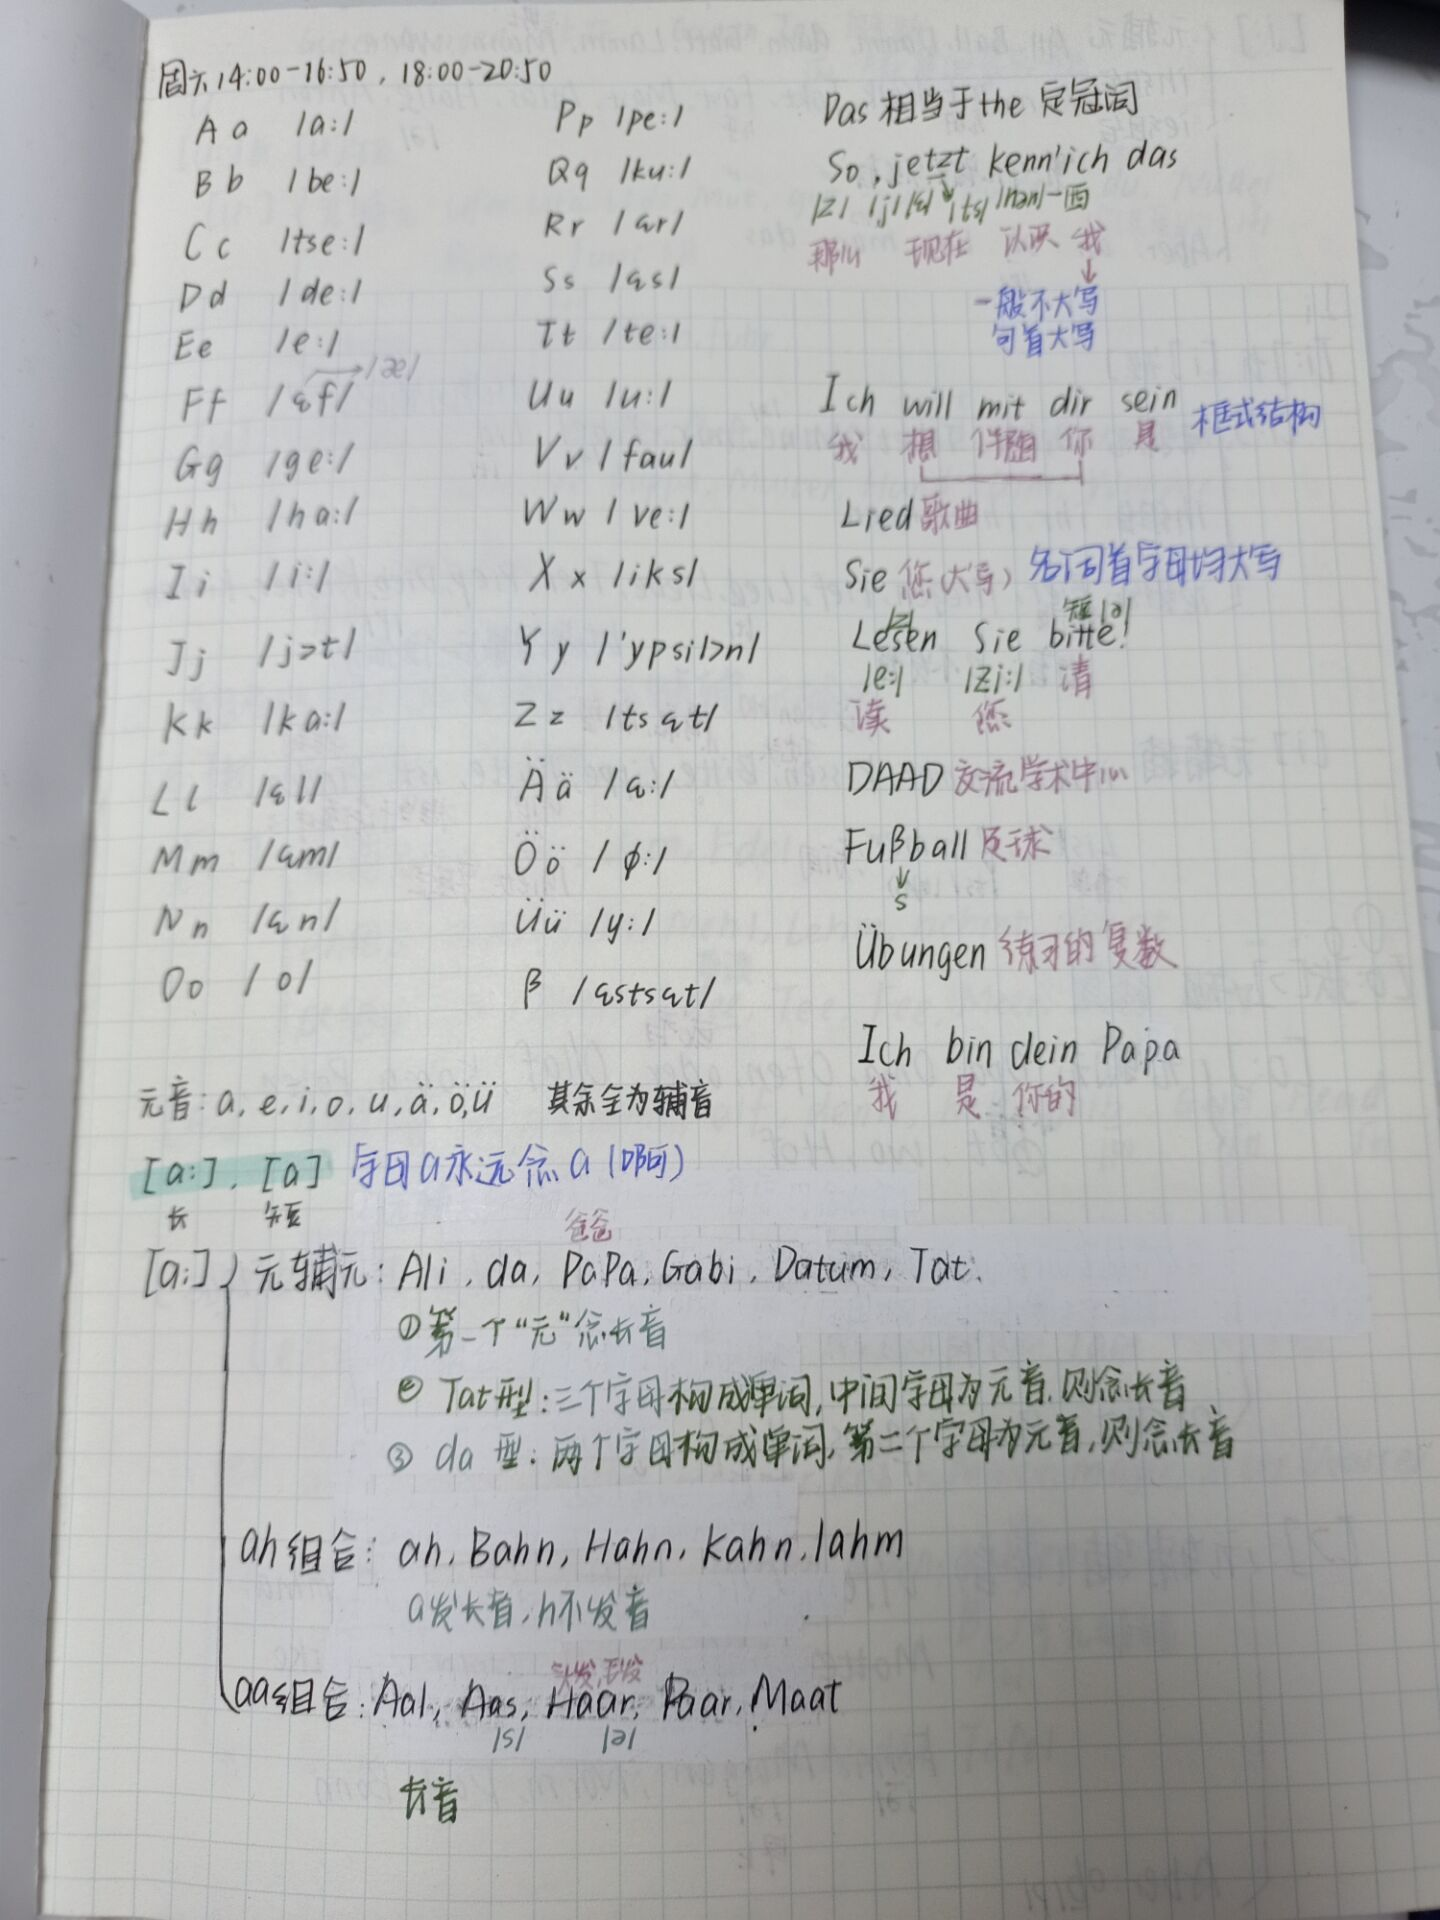 周六14:00-16:50，18:00-20:50
A a /a:/
B b /be:/
C c /tse:/
D d /de:/
E e /e:/
/æ/
F f /ɛf/
G g /ge:/
H h /ha:/
I i /i:/
J j /jɔt/
K k /ka:/
L l /ɛl/
M m /ɛm/
N n /ɛn/
O o /o/
P p /pe:/
Q q /ku:/
R r /ɛr/
S s /ɛs/
T t /te:/
U u /u:/
V v /fau/
W w /ve:/
X x /iks/
Y y /'ypsilɔn/
Z z /tsɛt/
Ä ä /ɛ:/
Ö ö /ø:/
Ü ü /y:/
β /ɛstsɛt/
Das 相当于the 定冠词
So, jetzt kenn'ich das
/z/ /j/ /ɛ/ /ts/ /nən/-西
那么 现在 认识 我
一般不大写
句首大写
Ich will mit dir sein 框式结构
我 想 伴随 你 是
Lied 歌曲
Sie 您(大写) 名词首字母均大写
/z/ 短/ə/
Lesen Sie bitte!
/e:/ /zi:/ 请
读 您
DAAD 交流学术中心
Fußball 足球
s
Übungen 练习的复数
Ich bin dein Papa
我 是 你的
元音: a, e, i, o, u, ä, ö, ü 其余全为辅音
[a:]、[a] 字母a永远念a (啊)
长 短
爸爸
[a:] 元辅元: Ali, da, PaPa, Gabi, Datum, Tat.
①第一个"元"念长音
② Tat型: 三个字母构成单词, 中间字母为元音, 则念长音
③ da 型: 两个字母构成单词, 第二个字母为元音, 则念长音
ah组合: ah, Bahn, Hahn, Kahn, lahm
a发长音, h不发音
头发,毛发
aa组合: Aal, Aas, Haar, Paar, Maat
/s/ /ə/
长音